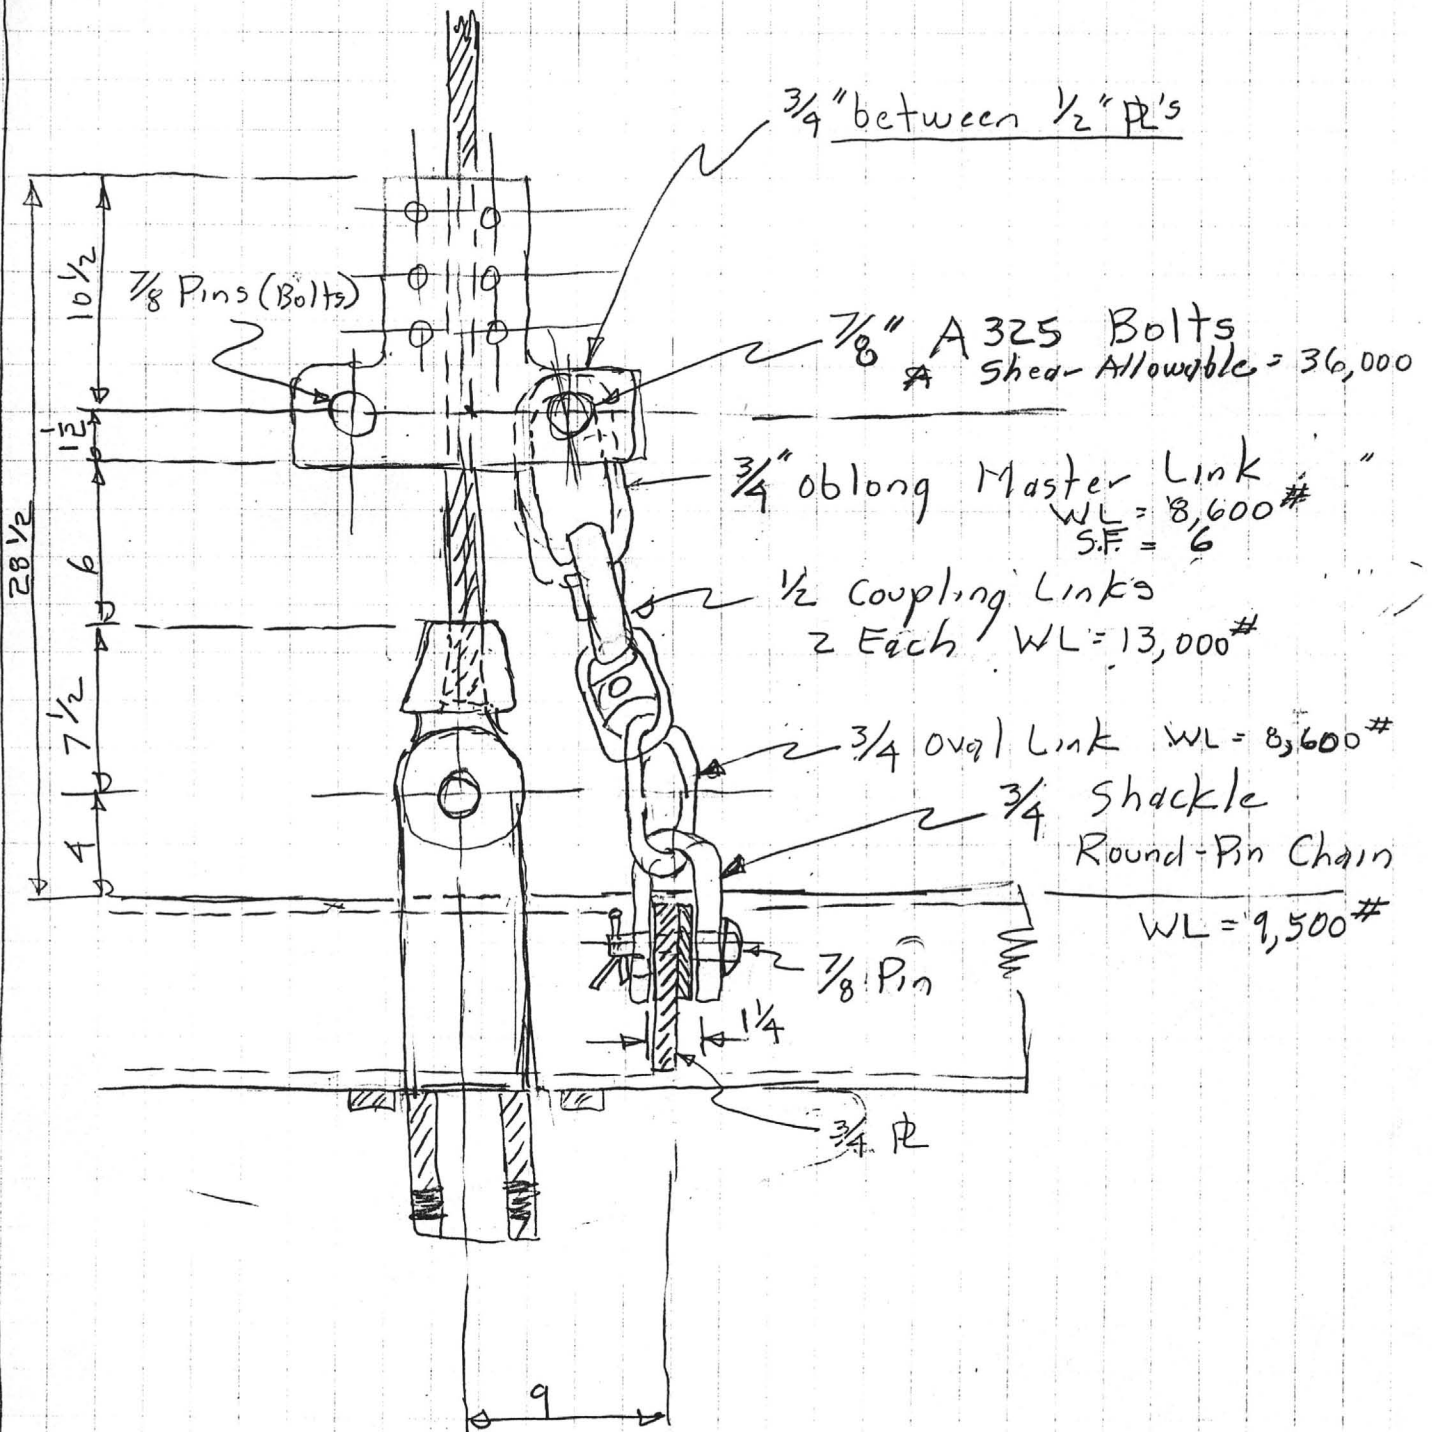 3/4" between 1/2" PL's
10 1/2
7/8 Pins (Bolts)
7/8" A 325 Bolts
Shear Allowable = 36,000
1 1/2
3/4" oblong Master Link "
WL = 8,600#
S.F. = 6
28 1/2
6
1/2 Coupling Links
2 Each WL = 13,000#
7 1/2
3/4 Oval Link WL = 8,600#
3/4 Shackle
Round-Pin Chain
4
WL = 9,500#
7/8 Pin
1 1/4
3/4 PL
9